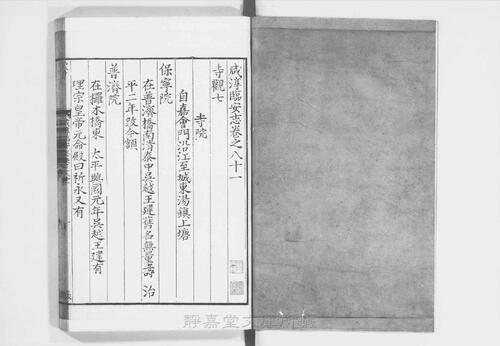 咸淳臨安志卷之八十一
寺觀七
寺院
自嘉會門沿江至城東湯鎮上塘
保寧院
在普濟橋南清泰中吳越王建舊名無量壽 治
平二年改今額
普濟院
在攞木橋東 太平興國元年吳越王建有
理宗皇帝元命殿曰祈永又有
靜嘉堂文庫所蔵